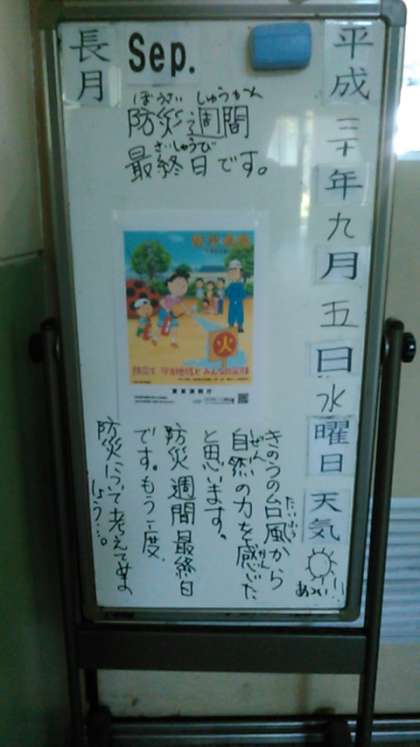 平成三十年九月五日水曜日天気
あつい!!
長月
Sep.
ぼうさい しゅうかん
防災週間
さいしゅうび
最終日です。
火
東京消防庁
きのうの台風から
たいふう
自然の力を感じた
しぜん
かん
と思います。
防災週間最終日
です。もう一度、
防災について考えてみま
しょう…。